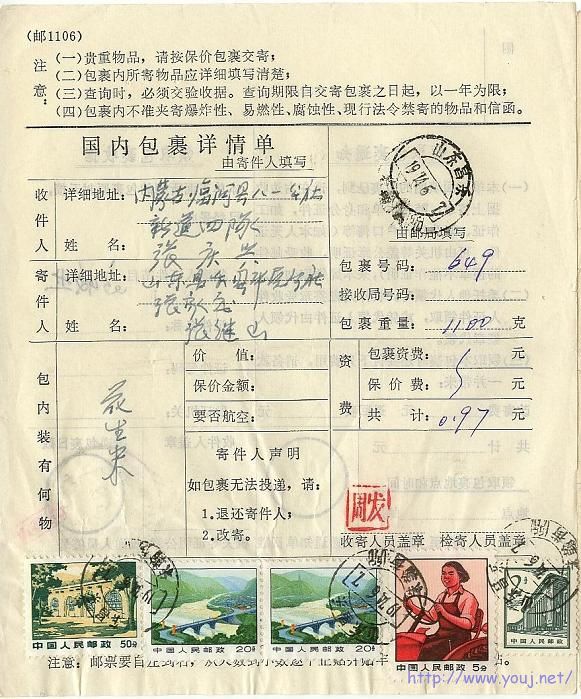 (邮1106)
注意：
(一)贵重物品，请按保价包裹交寄；
(二)包裹内所寄物品应详细填写清楚；
(三)查询时，必须交验收据。查询期限自交寄包裹之日起，以一年为限；
(四)包裹内不准夹寄爆炸性、易燃性、腐蚀性、现行法令禁寄的物品和信函。
国内包裹详情单
由寄件人填写
山东昌乐
收件人
详细地址：内蒙古临河县八一公社
新道四队
姓名：张庆兴
由邮局填写
寄件人
详细地址：山东昌乐县
姓名：张继山
包裹号码：649
接收局号码：
包裹重量：1100克
包内装有何物
花生米
价值：
保价金额：
要否航空：
资费
包裹资费：元
保价费：元
共计：0.97元
寄件人声明
如包裹无法投递，请：
1.退还寄件人；
2.改寄。
收寄人员盖章
检寄人员盖章
中国人民邮政 50分
中国人民邮政 20分
中国人民邮政 20分
中国人民邮政 5分
中国人民邮政
注意：邮票要自左
http://www.youj.net/